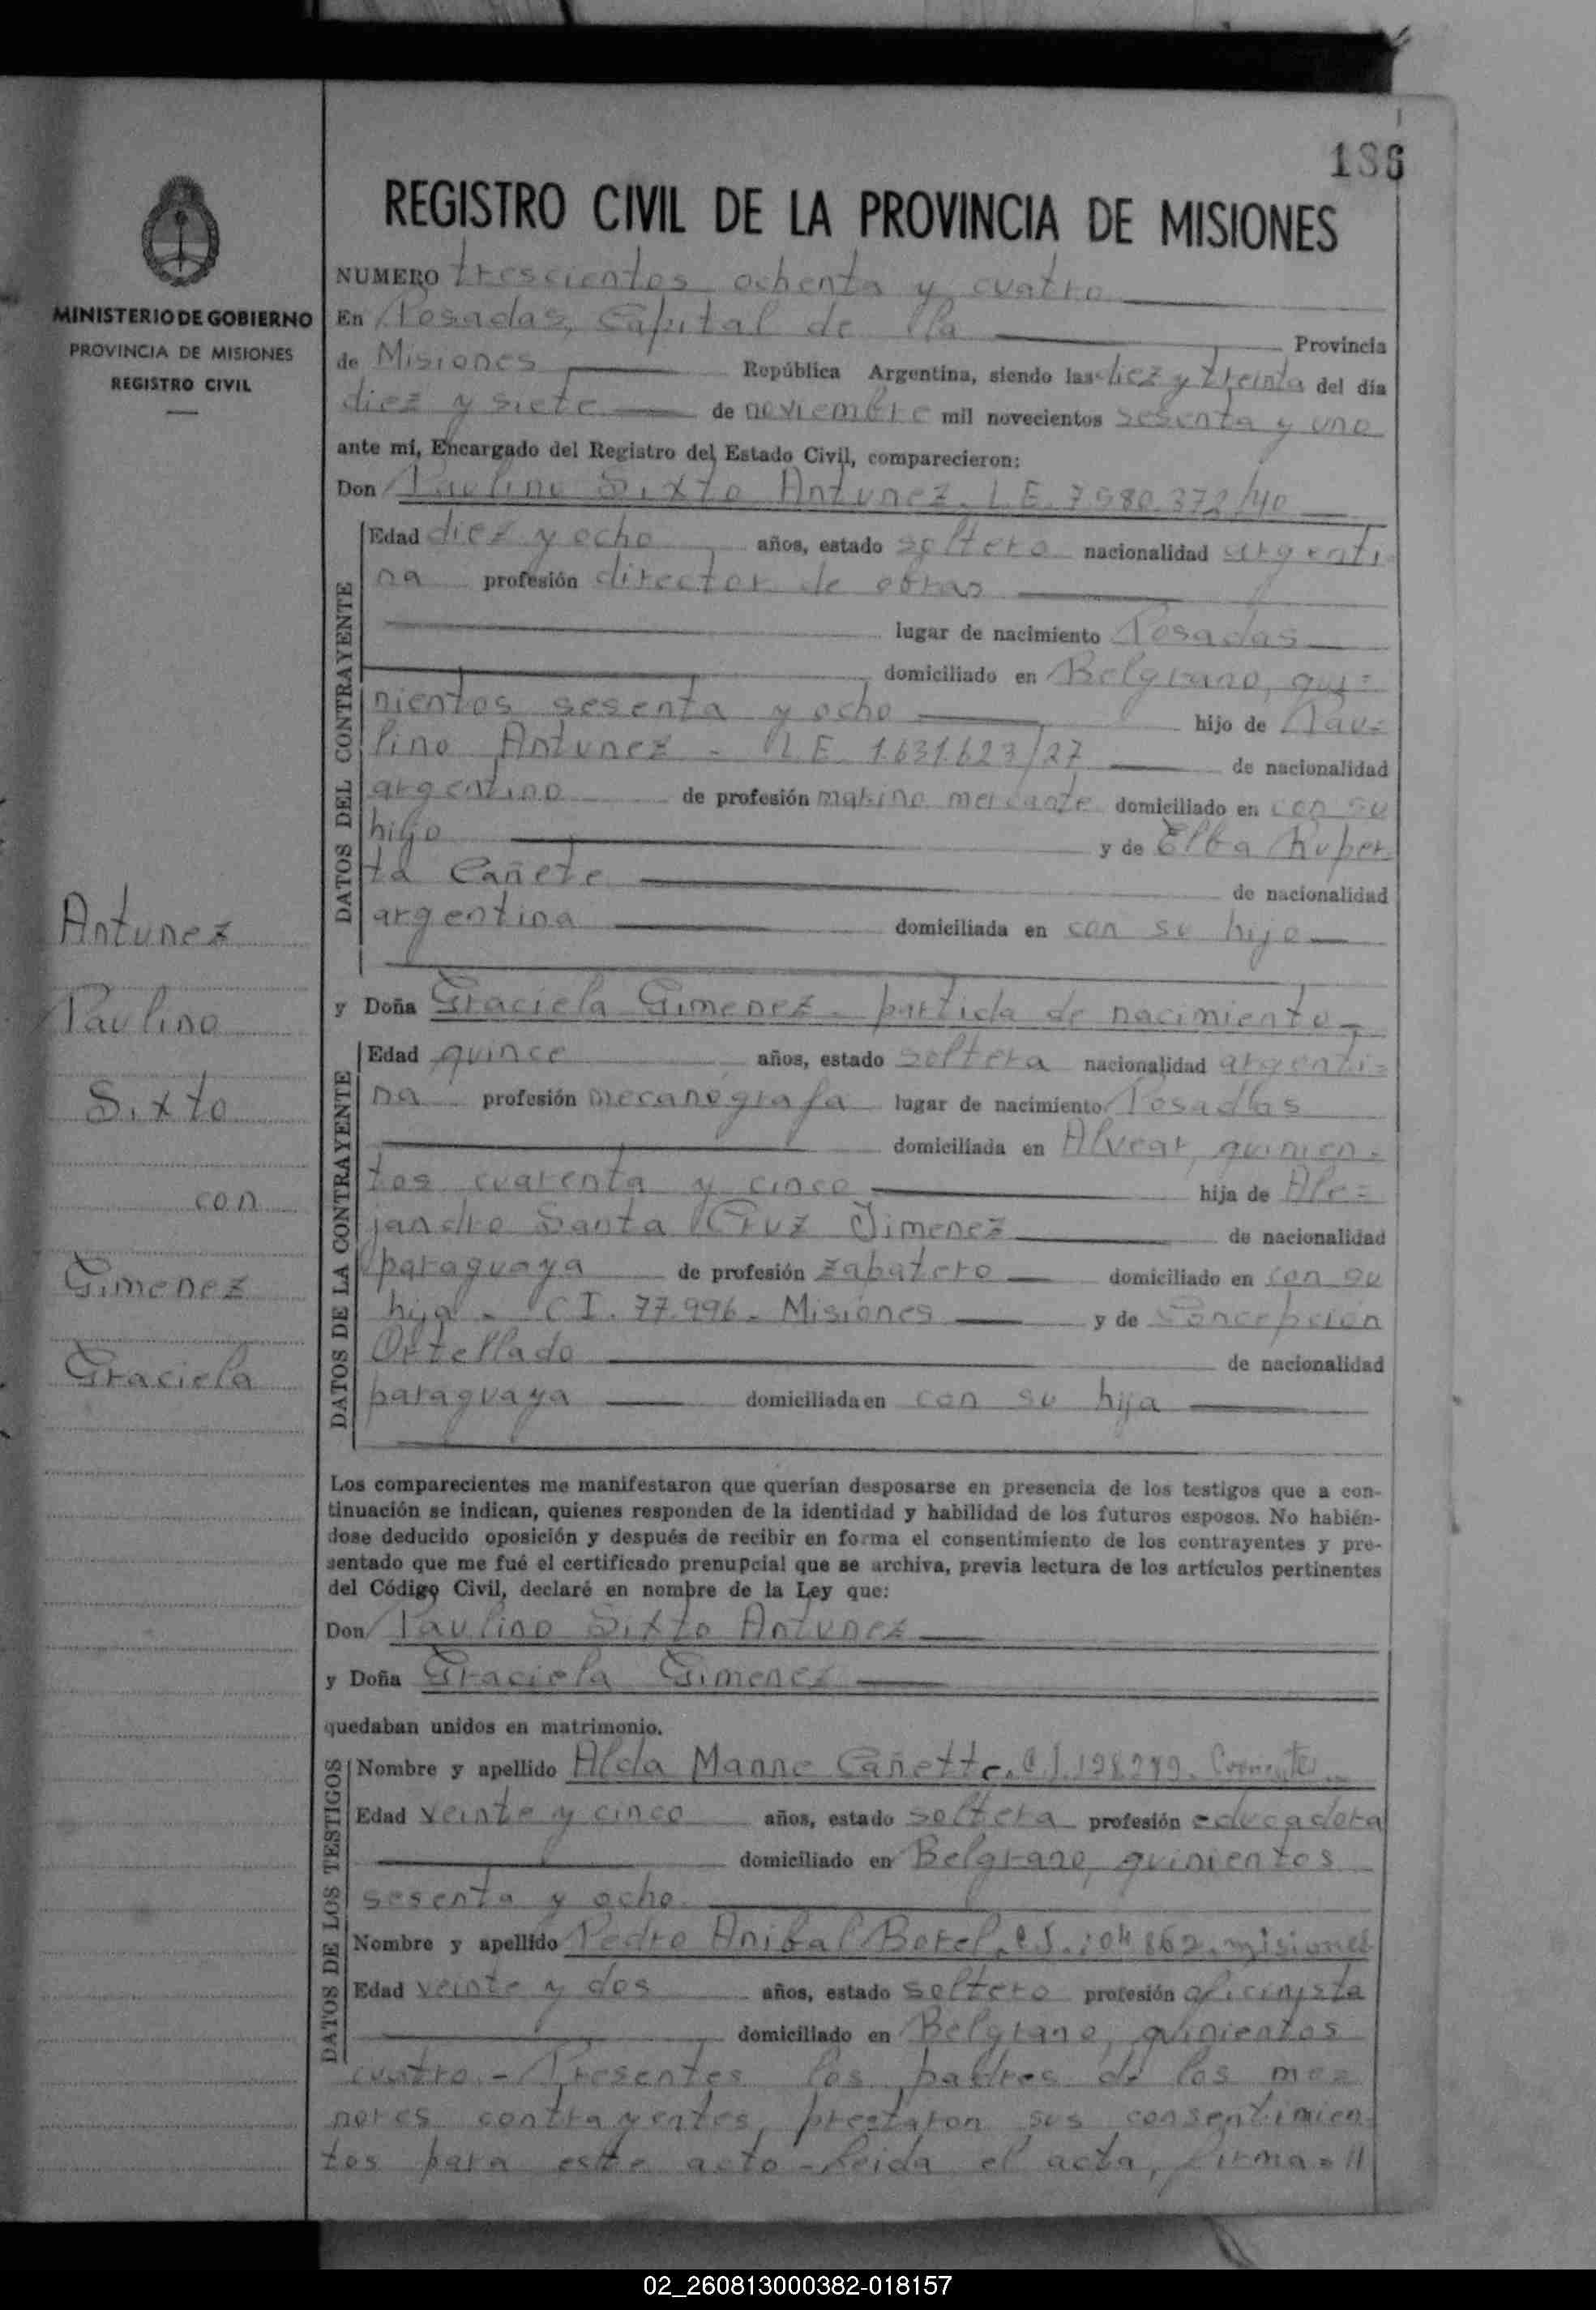 186
REGISTRO CIVIL DE LA PROVINCIA DE MISIONES
MINISTERIO DE GOBIERNO
PROVINCIA DE MISIONES
REGISTRO CIVIL
Antunez
Paulino
Sixto
con
Gimenez
Graciela
NUMERO trescientos ochenta y cuatro
En Posadas, Capital de la Provincia
de Misiones República Argentina, siendo las diez y treinta del día
diez y siete de noviembre mil novecientos sesenta y uno
ante mí, Encargado del Registro del Estado Civil, comparecieron:
Don Paulino Sixto Antunez. L.E. 7.580.372/40
DATOS DEL CONTRAYENTE
Edad diez y ocho años, estado soltero nacionalidad argenti-
na profesión director de obras
lugar de nacimiento Posadas
domiciliado en Belgrano, qui=
nientos sesenta y ocho hijo de Pau=
lino Antunez - L.E. 1.631.623/27 de nacionalidad
argentino de profesión marino mercante domiciliado en con su
hijo y de Elba Ruper-
ta Cañete de nacionalidad
argentina domiciliada en con su hijo
y Doña Graciela Gimenez - partida de nacimiento -
DATOS DE LA CONTRAYENTE
Edad quince años, estado soltera nacionalidad argenti=
na profesión mecanógrafa lugar de nacimiento Posadas
domiciliada en Alvear, quinien=
tos cuarenta y cinco hija de Ale=
jandro Santa Cruz Jimenez de nacionalidad
paraguaya de profesión zapatero domiciliado en con su
hija - C.I. 77.996 - Misiones y de Concepción
Ortellado de nacionalidad
paraguaya domiciliada en con su hija
Los comparecientes me manifestaron que querían desposarse en presencia de los testigos que a con-
tinuación se indican, quienes responden de la identidad y habilidad de los futuros esposos. No habién-
dose deducido oposición y después de recibir en forma el consentimiento de los contrayentes y pre-
sentado que me fué el certificado prenupcial que se archiva, previa lectura de los artículos pertinentes
del Código Civil, declaré en nombre de la Ley que:
Don Paulino Sixto Antunez
y Doña Graciela Gimenez
quedaban unidos en matrimonio.
DATOS DE LOS TESTIGOS
Nombre y apellido Alda Manne Cañette. C.I. Corrientes
Edad veinte y cinco años, estado soltera profesión educadora
domiciliado en Belgrano, quinientos
sesenta y ocho.
Nombre y apellido Pedro Anibal Botel. C.I. 104.862. misiones
Edad veinte y dos años, estado soltero profesión oficinista
domiciliado en Belgrano, quinientos
cuatro. - Presentes los padres de los me=
nores contrayentes, prestaron sus consentimien-
tos para este acto - Leida el acta, firma=//
02_260813000382-018157